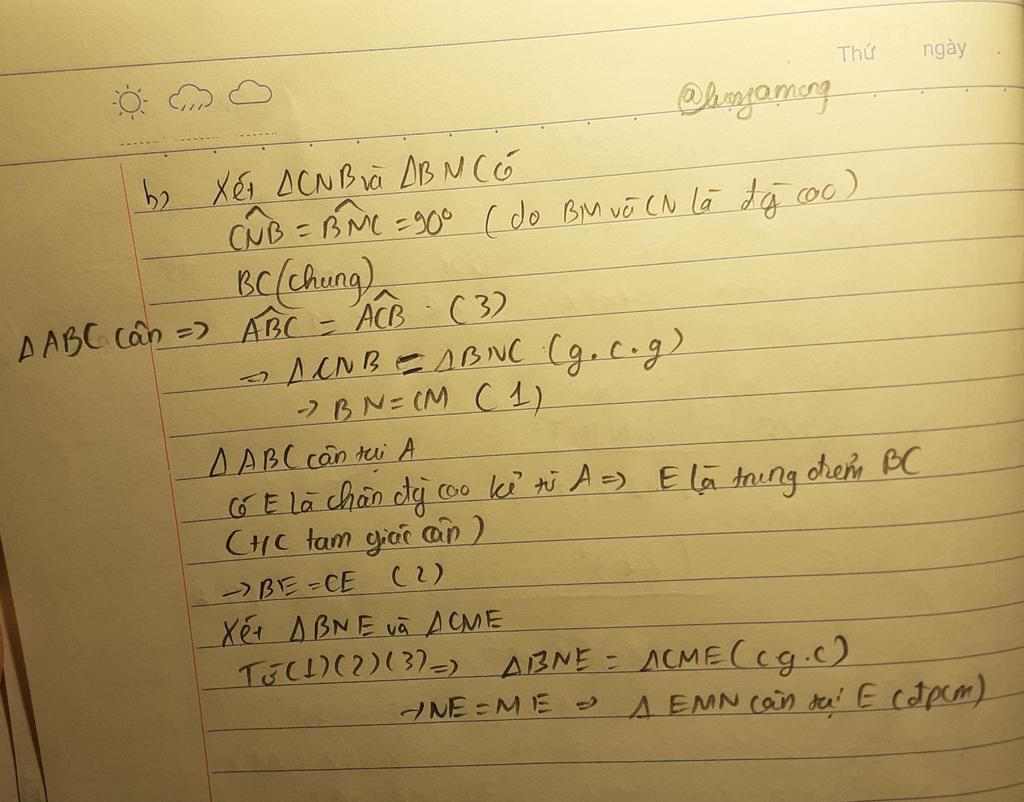 Thứ ngày .
@hngamcng
b) Xét ΔCNB và ΔBMC có
∠CNB = ∠BMC = 90° (do BM và CN là đg cao)
BC (chung)
ΔABC cân => ∠ABC = ∠ACB . (3)
→ ΔCNB = ΔBNC (g.c.g)
→ BN = CM (1)
ΔABC cân tại A
có E là chân đg cao kẻ từ A => E là trung điểm BC
(t/c tam giác cân)
→ BE = CE (2)
Xét ΔBNE và ΔCME
Từ (1)(2)(3) => ΔBNE = ΔCME (c.g.c)
→ NE = ME => Δ EMN cân tại E (đpcm)